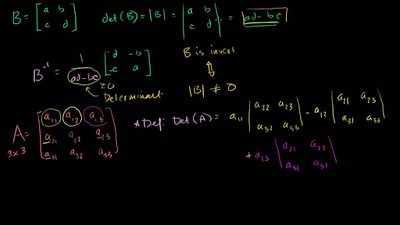 B = [ a b
c d ]
det(B) = |B| = | a b
c d | = ad-bc
B⁻¹ = 1/(ad-bc) [ d -b
-c a ]
≠0
Determinant
B is invert
⇕
|B| ≠ 0
A = [ a₁₁ a₁₂ a₁₃
a₂₁ a₂₂ a₂₃
a₃₁ a₃₂ a₃₃ ]
3×3
* Def: Det(A) = a₁₁ | a₂₂ a₂₃
a₃₂ a₃₃ | - a₁₂ | a₂₁ a₂₃
a₃₁ a₃₃ |
+ a₁₃ | a₂₁ a₂₂
a₃₁ a₃₂ |